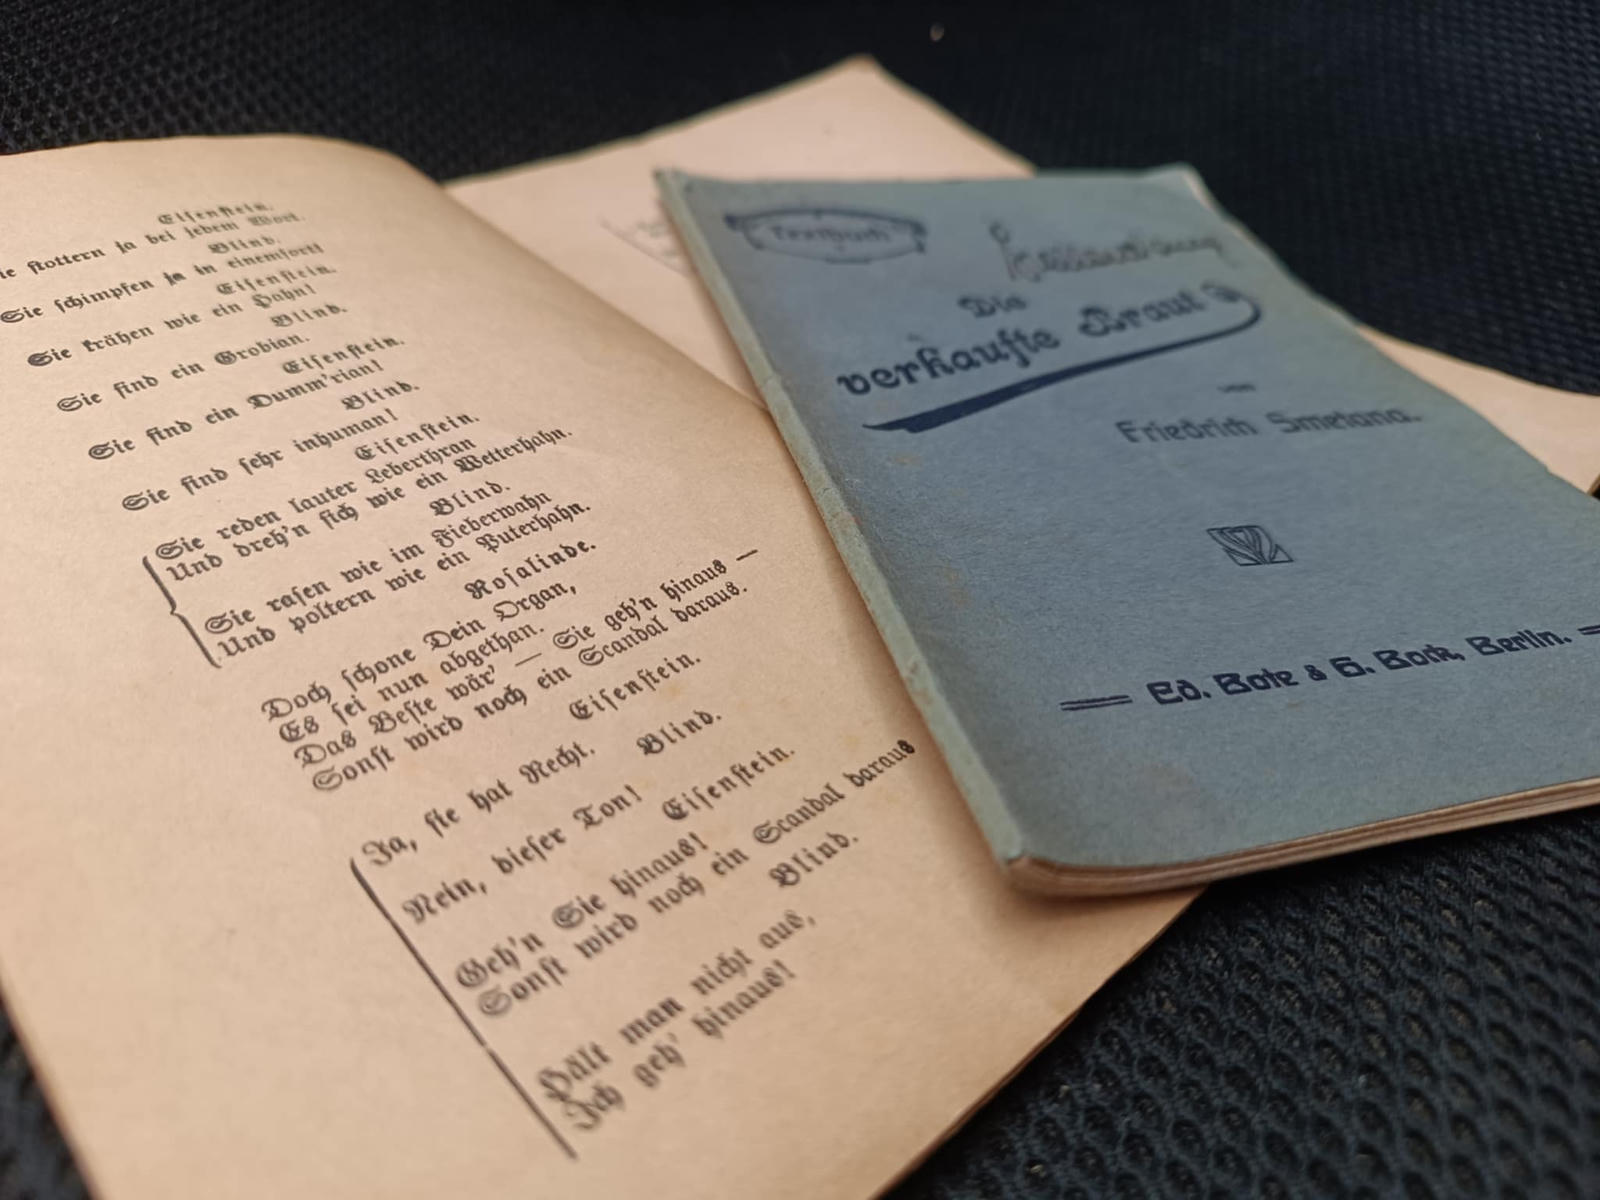 Eisenstein.
Sie stottern ja bei jedem Wort.
Blind.
Sie schimpfen ja in einemfort!
Eisenstein.
Sie krähen wie ein Hahn!
Blind.
Sie sind ein Grobian.
Eisenstein.
Sie sind ein Dumm'rian!
Blind.
Sie sind sehr inhuman!
Eisenstein.
Sie reden lauter Leberthran
Und dreh'n sich wie ein Wetterhahn.
Blind.
Sie rasen wie im Fieberwahn
Und poltern wie ein Puterhahn.
Rosalinde.
Doch schone Dein Organ,
Es sei nun abgethan.
Das Beste wär' — Sie geh'n hinaus —
Sonst wird noch ein Scandal daraus.
Eisenstein.
Ja, sie hat Recht.
Blind.
Nein, dieser Ton!
Eisenstein.
Geh'n Sie hinaus!
Sonst wird noch ein Scandal daraus
Blind.
Hält man nicht aus,
Ich geh' hinaus!
Textbuch
Die
verkaufte Braut
von
Friedrich Smetana.
Ed. Bote & G. Bock, Berlin.